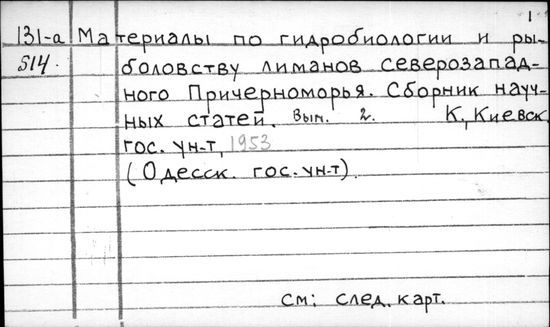 1
131-а Материалы по гидробиологии и ры-
514. боловству лиманов северозапад-
ного Причерноморья. Сборник науч-
ных статей. Вып. 2. К., Киевск.
гос. ун-т, 1953
(Одесск. гос. ун-т).
см: след. карт.